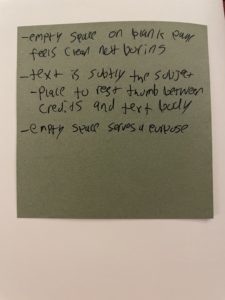 -empty space on blank page
feels clean not boring
-text is subtly the subject
-place to rest thumb between
credits and text body
-empty space serves a purpose